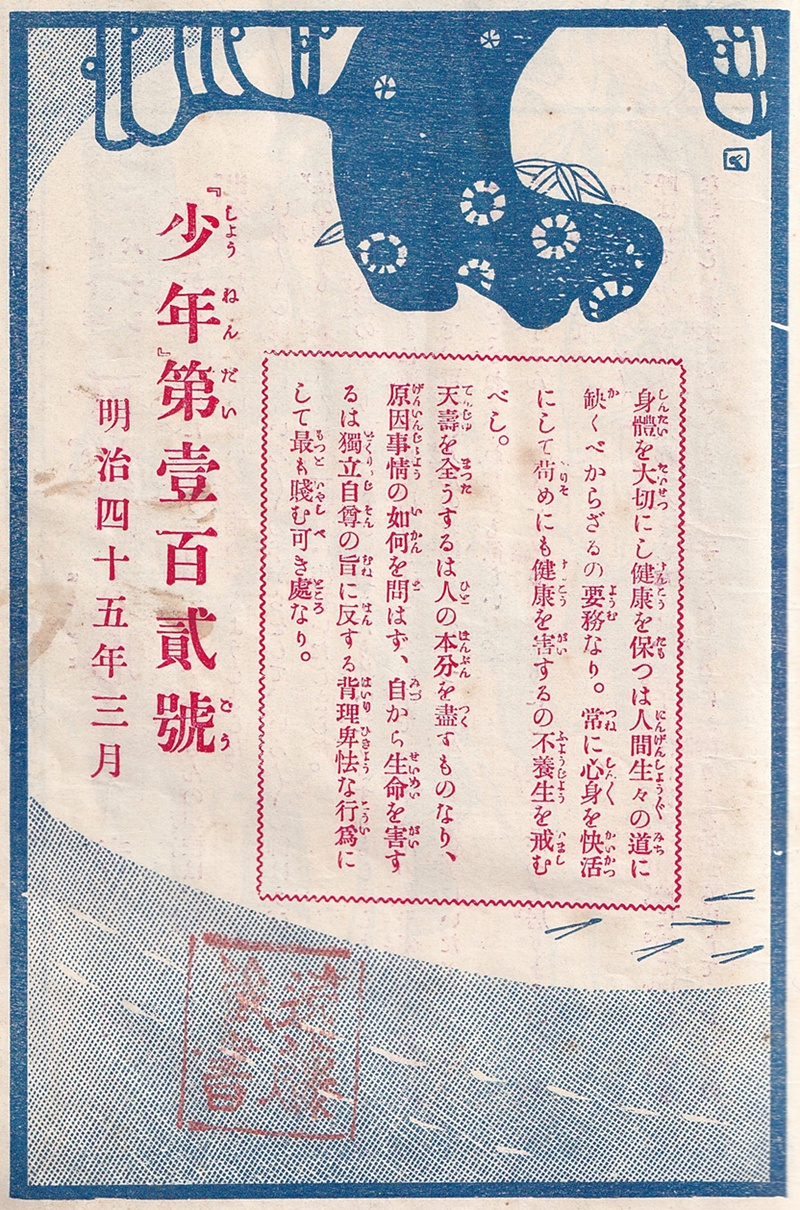 身體を大切にし健康を保つは人間生々の道に
缺くべからざるの要務なり。常に心身を快活
にして苟めにも健康を害するの不養生を戒む
べし。
天壽を全うするは人の本分を盡すものなり、
原因事情の如何を問はず、自から生命を害す
るは獨立自尊の旨に反する背理卑怯な行爲に
して最も賤む可き處なり。
『少年』第壹百貳號
明治四十五年三月